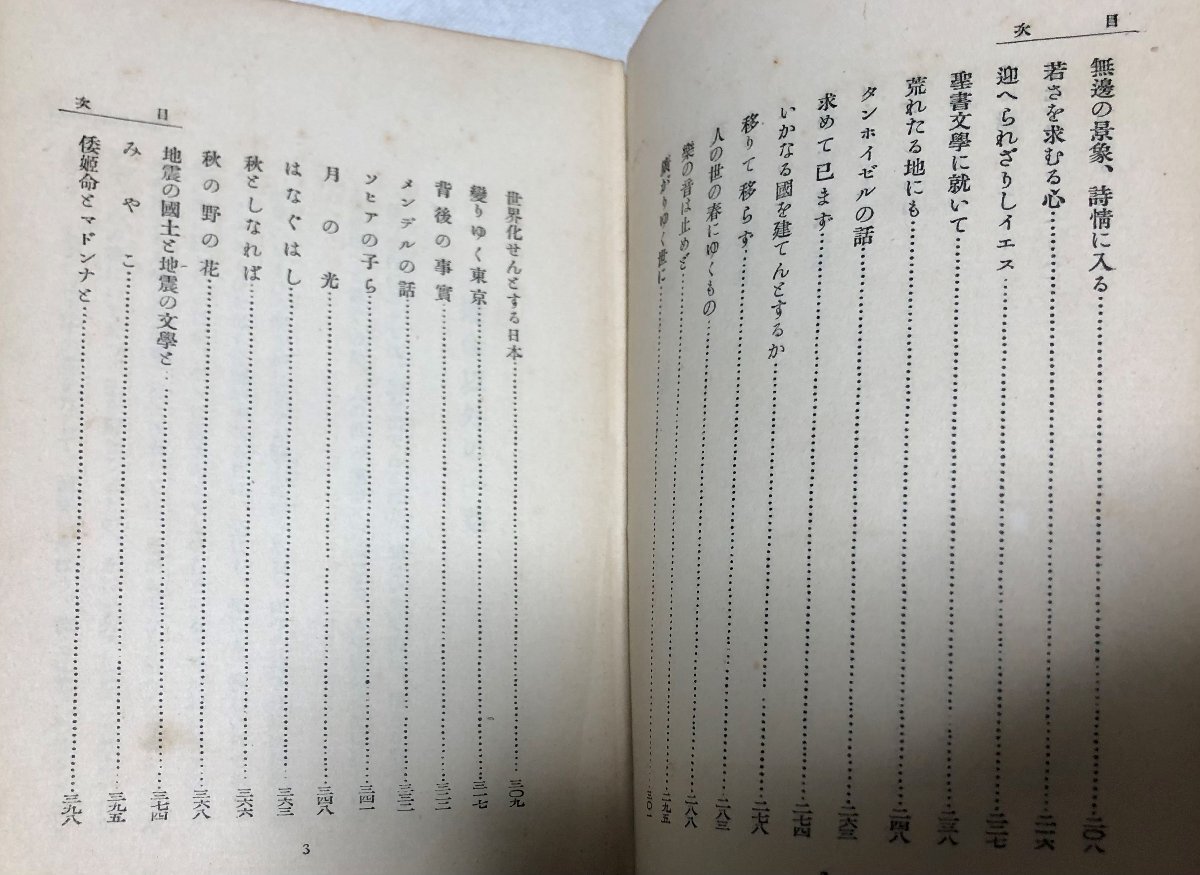 目次
無邊の景象、詩情に入る……二〇八
若さを求むる心……二一六
迎へられざりしイエス……二二七
聖書文學に就いて……二三八
荒れたる地にも……二四八
タンホイゼルの話……二六三
求めて已まず……二七四
いかなる國を建てんとするか……二七八
移りて移らず……二八三
人の世の春にゆくもの……二八八
樂の音は止めど……二九五
廣がりゆく世に……三〇一
目次
世界化せんとする日本……三〇九
變りゆく東京……三一七
背後の事實……三二二
メンデルの話……三三二
ソヒアの子ら……三四一
月の光……三四八
はなぐはし……三六三
秋としなれば……三六六
秋の野の花……三六八
地震の國土と地震の文學と……三七四
みやこ……三九五
倭姫命とマドンナと……三九八
3